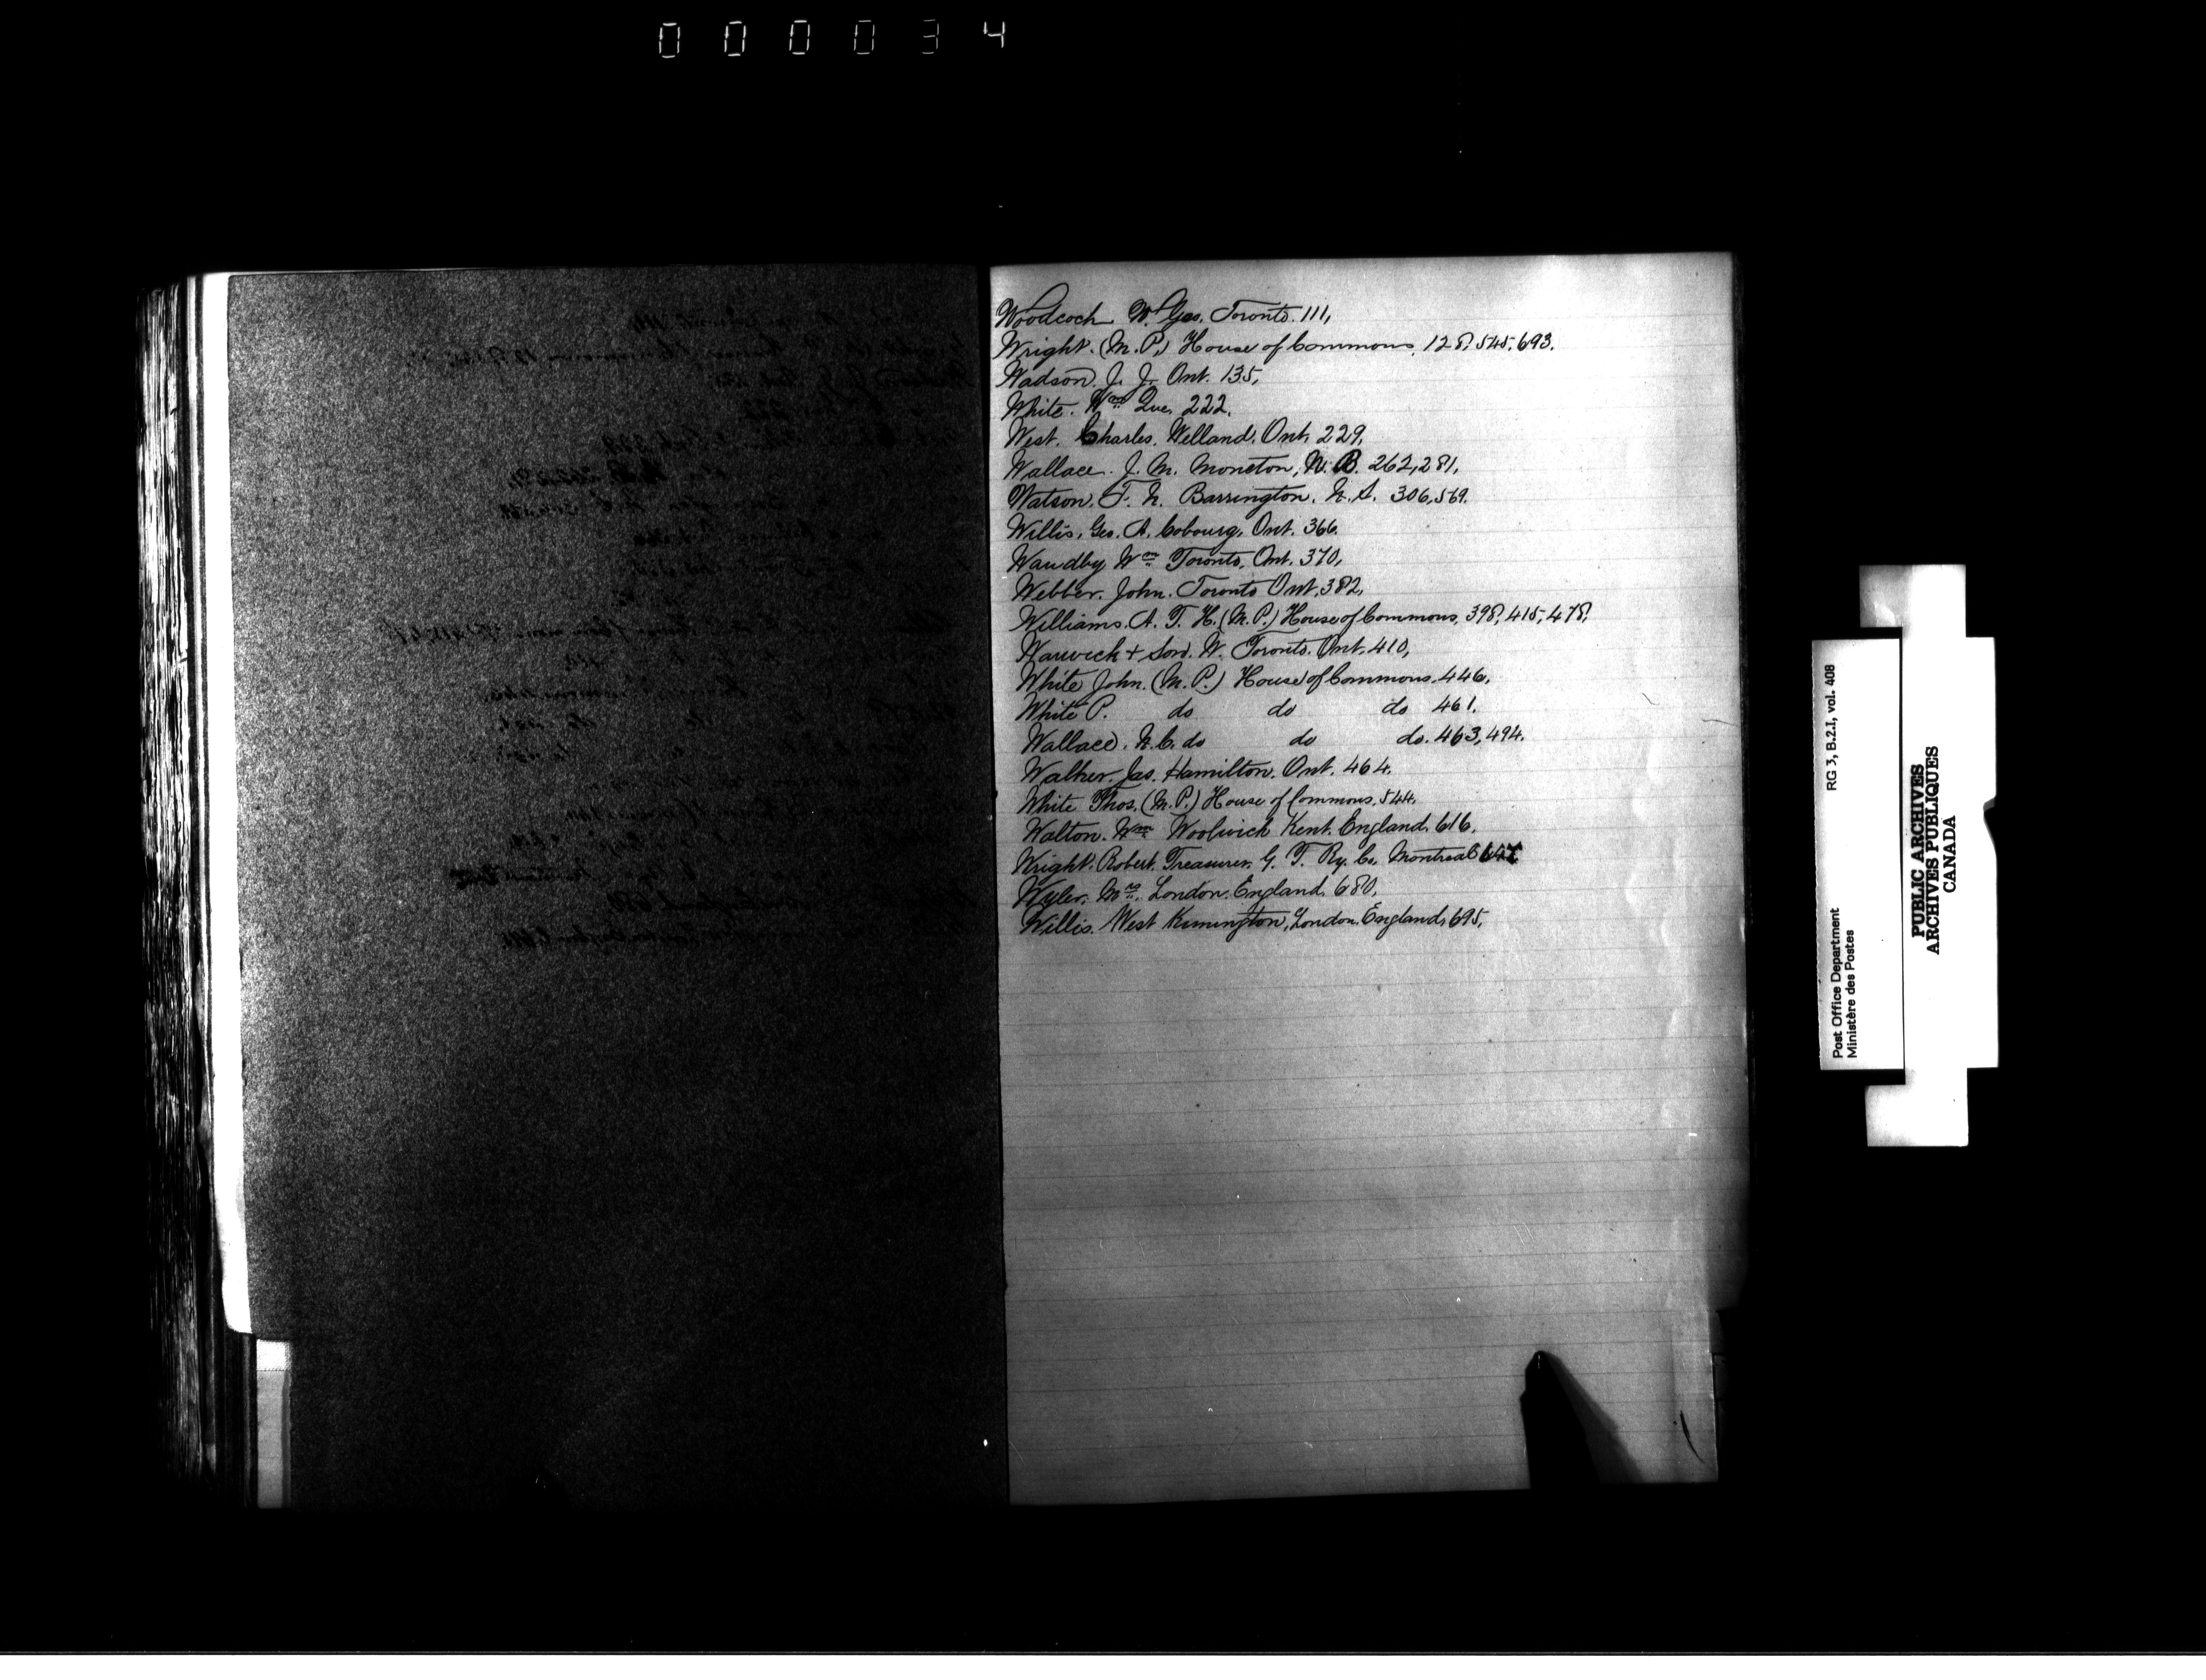 000034
Woodcock W. Geo. Toronto. 111,
Wright. (M.P.) House of Commons, 128, 545, 693.
Wadson. J. J. Ont. 135,
White. Wm Que. 222.
West. Charles. Welland. Ont. 229,
Wallace. J. M. Moncton, N. B. 262, 281,
Watson. T. N. Barrington. N. S. 306, 569.
Willis, Geo. A. Cobourg, Ont. 366.
Waudby Wm Toronto, Ont. 370,
Webber. John. Toronto Ont. 382,
Williams. A. T. H. (M. P.) House of Commons, 398, 415, 478,
Warwick + Son. W. Toronto. Ont. 410,
White John. (M. P.) House of Commons. 446,
White P. do do do 461.
Wallace. N. C. do do do. 463, 494.
Walker. Jas. Hamilton. Ont. 464.
White Thos. (M. P.) House of Commons. 544.
Walton. Wm Woolwich Kent. England. 616.
Wright. Robert. Treasurer. G. T. Ry. Co. Montreal 647
Wyler. Mrs. London. England. 680.
Willis. West Kinnington, London. England, 695,
Post Office Department RG 3, B.2.I, vol. 408
Ministère des Postes
PUBLIC ARCHIVES
ARCHIVES PUBLIQUES
CANADA